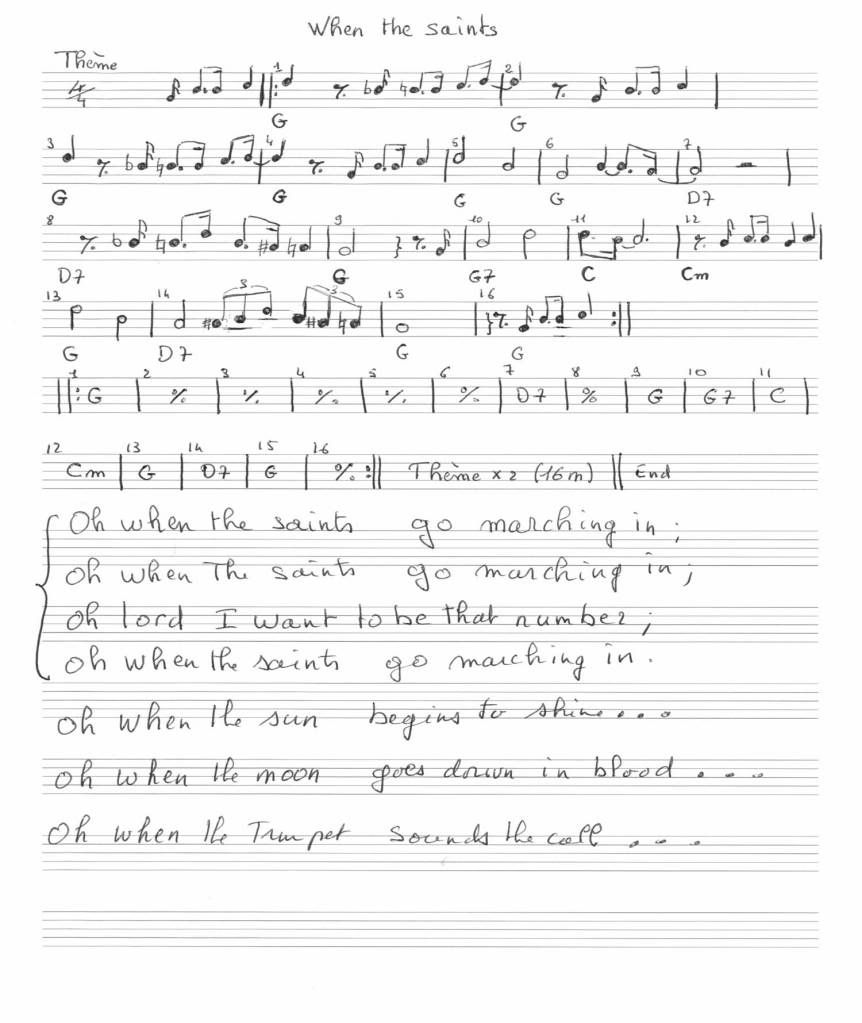 When the saints
Thème
4/4
1 2
G G
3 4 5 6 7
G G G G D7
8 9 10 11 12
D7 G G7 C Cm
13 3 3 14 15 16
G D7 G G
1 2 3 4 5 6 7 8 9 10 11
G % % % % % D7 % G G7 C
12 13 14 15 16
Cm G D7 G % Thème x 2 (16m) End
Oh when the saints go marching in ;
oh when The saints go marching in ;
oh lord I want to be that number ;
oh when the saints go marching in .
oh when the sun begins to shine ....
oh when the moon goes down in blood ....
Oh when the Trumpet sounds the call ....